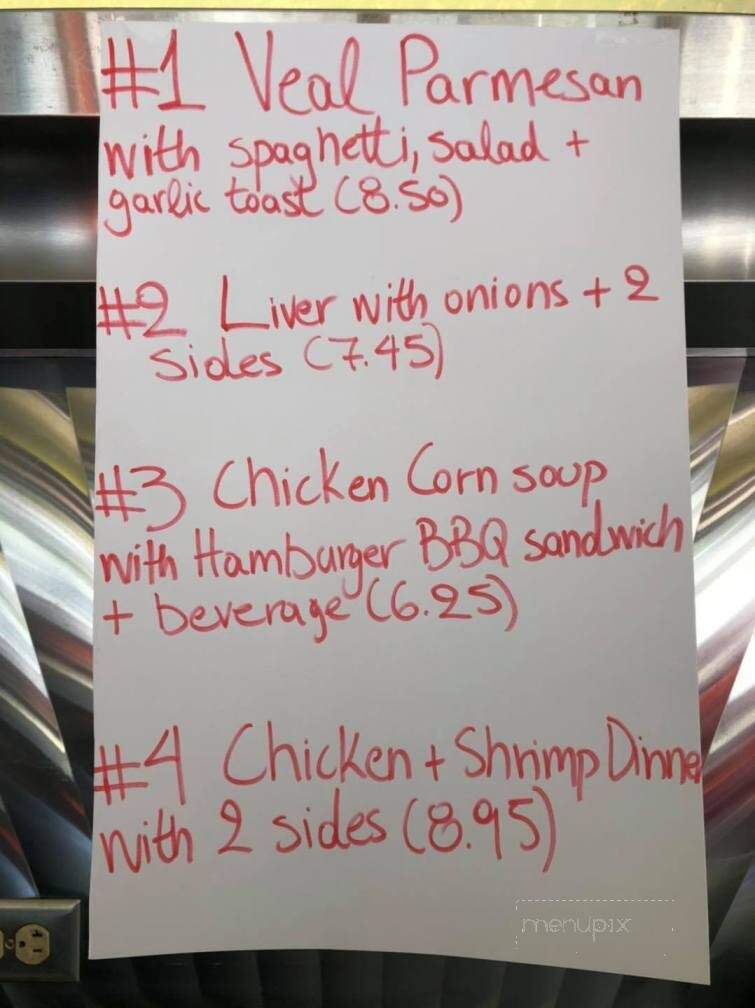 #1 Veal Parmesan
with spaghetti, salad +
garlic toast (8.50)
#2 Liver with onions + 2
sides (7.45)
#3 Chicken Corn soup
with Hamburger BBQ sandwich
+ beverage (6.25)
#4 Chicken + Shrimp Dinne
with 2 sides (8.95)
menupix